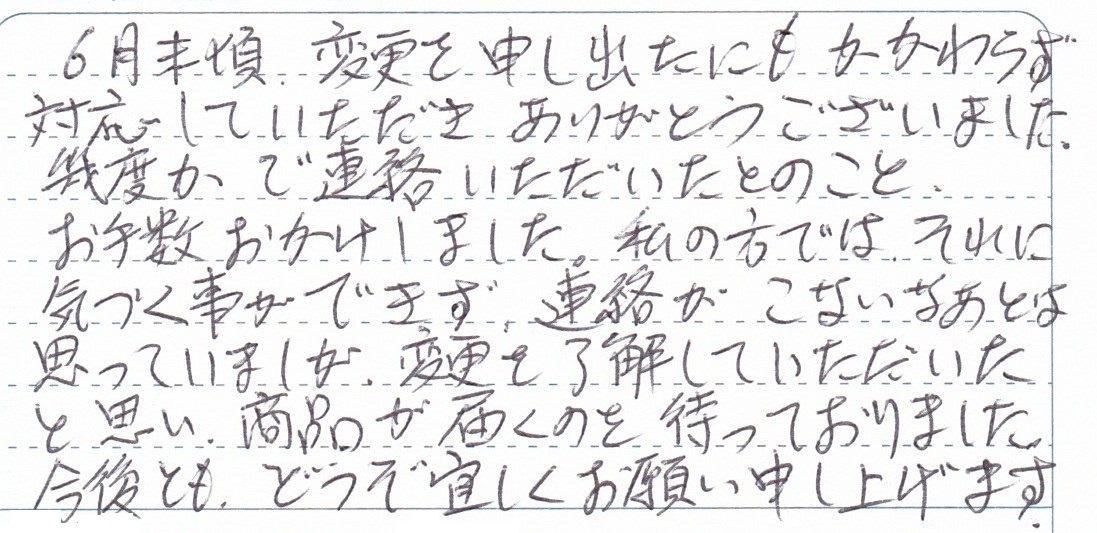 6月末頃、変更を申し出たにもかかわらず
対応していただきありがとうございました。
幾度かご連絡いただいたとのこと、
お手数おかけしました。私の方では、それに
気づく事ができず、連絡がこないなあとは
思っていましが、変更を了解していただいた
と思い、商品が届くのを待っておりました。
今後とも、どうぞ宜しくお願い申し上げます。